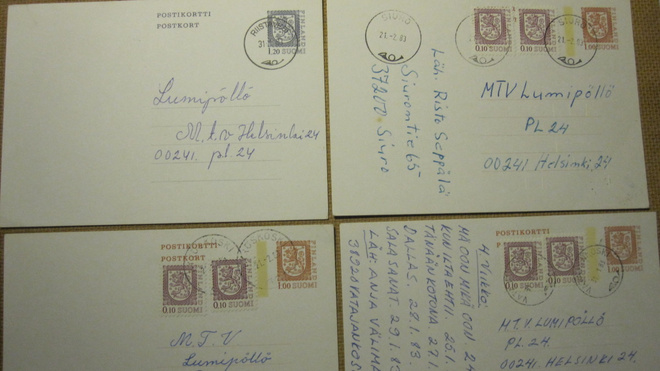 POSTIKORTTI
POSTKORT
FINLAND
1.20 SUOMI
31
Lumipöllö
M.t.v Helsinki 24
00241. pl. 24
SIURO
21.-2.83
SIURO
21.-2.83
0.10 SUOMI
0.10 SUOMI
FINLAND
1.00 SUOMI
Läh. Risto Seppälä
Siurontie 65
37200 Siuro
MTV Lumipöllö
PL 24
00241 Helsinki, 24
POSTIKORTTI
POSTKORT
0.10 SUOMI
0.10 SUOMI
FINLAND
1.00 SUOMI
M.T.V
Lumipöllö
POSTIKORTTI
0.10 SUOMI
0.10 SUOMI
FINLAND
1.00 SUOMI
4. VIIKKO:
MÄ OON MIKÄ OON 24
KUN ILTA EHTII. 25.1
TÄNÄÄN KOTONA. 27.1
DALLAS. 28.1. 83.
SALASANAT. 29.1. 83
LÄH. ANJA VÄLIMÄ
M.T.V. LUMIPÖLLÖ
PL. 24.
00241. HELSINKI 24.